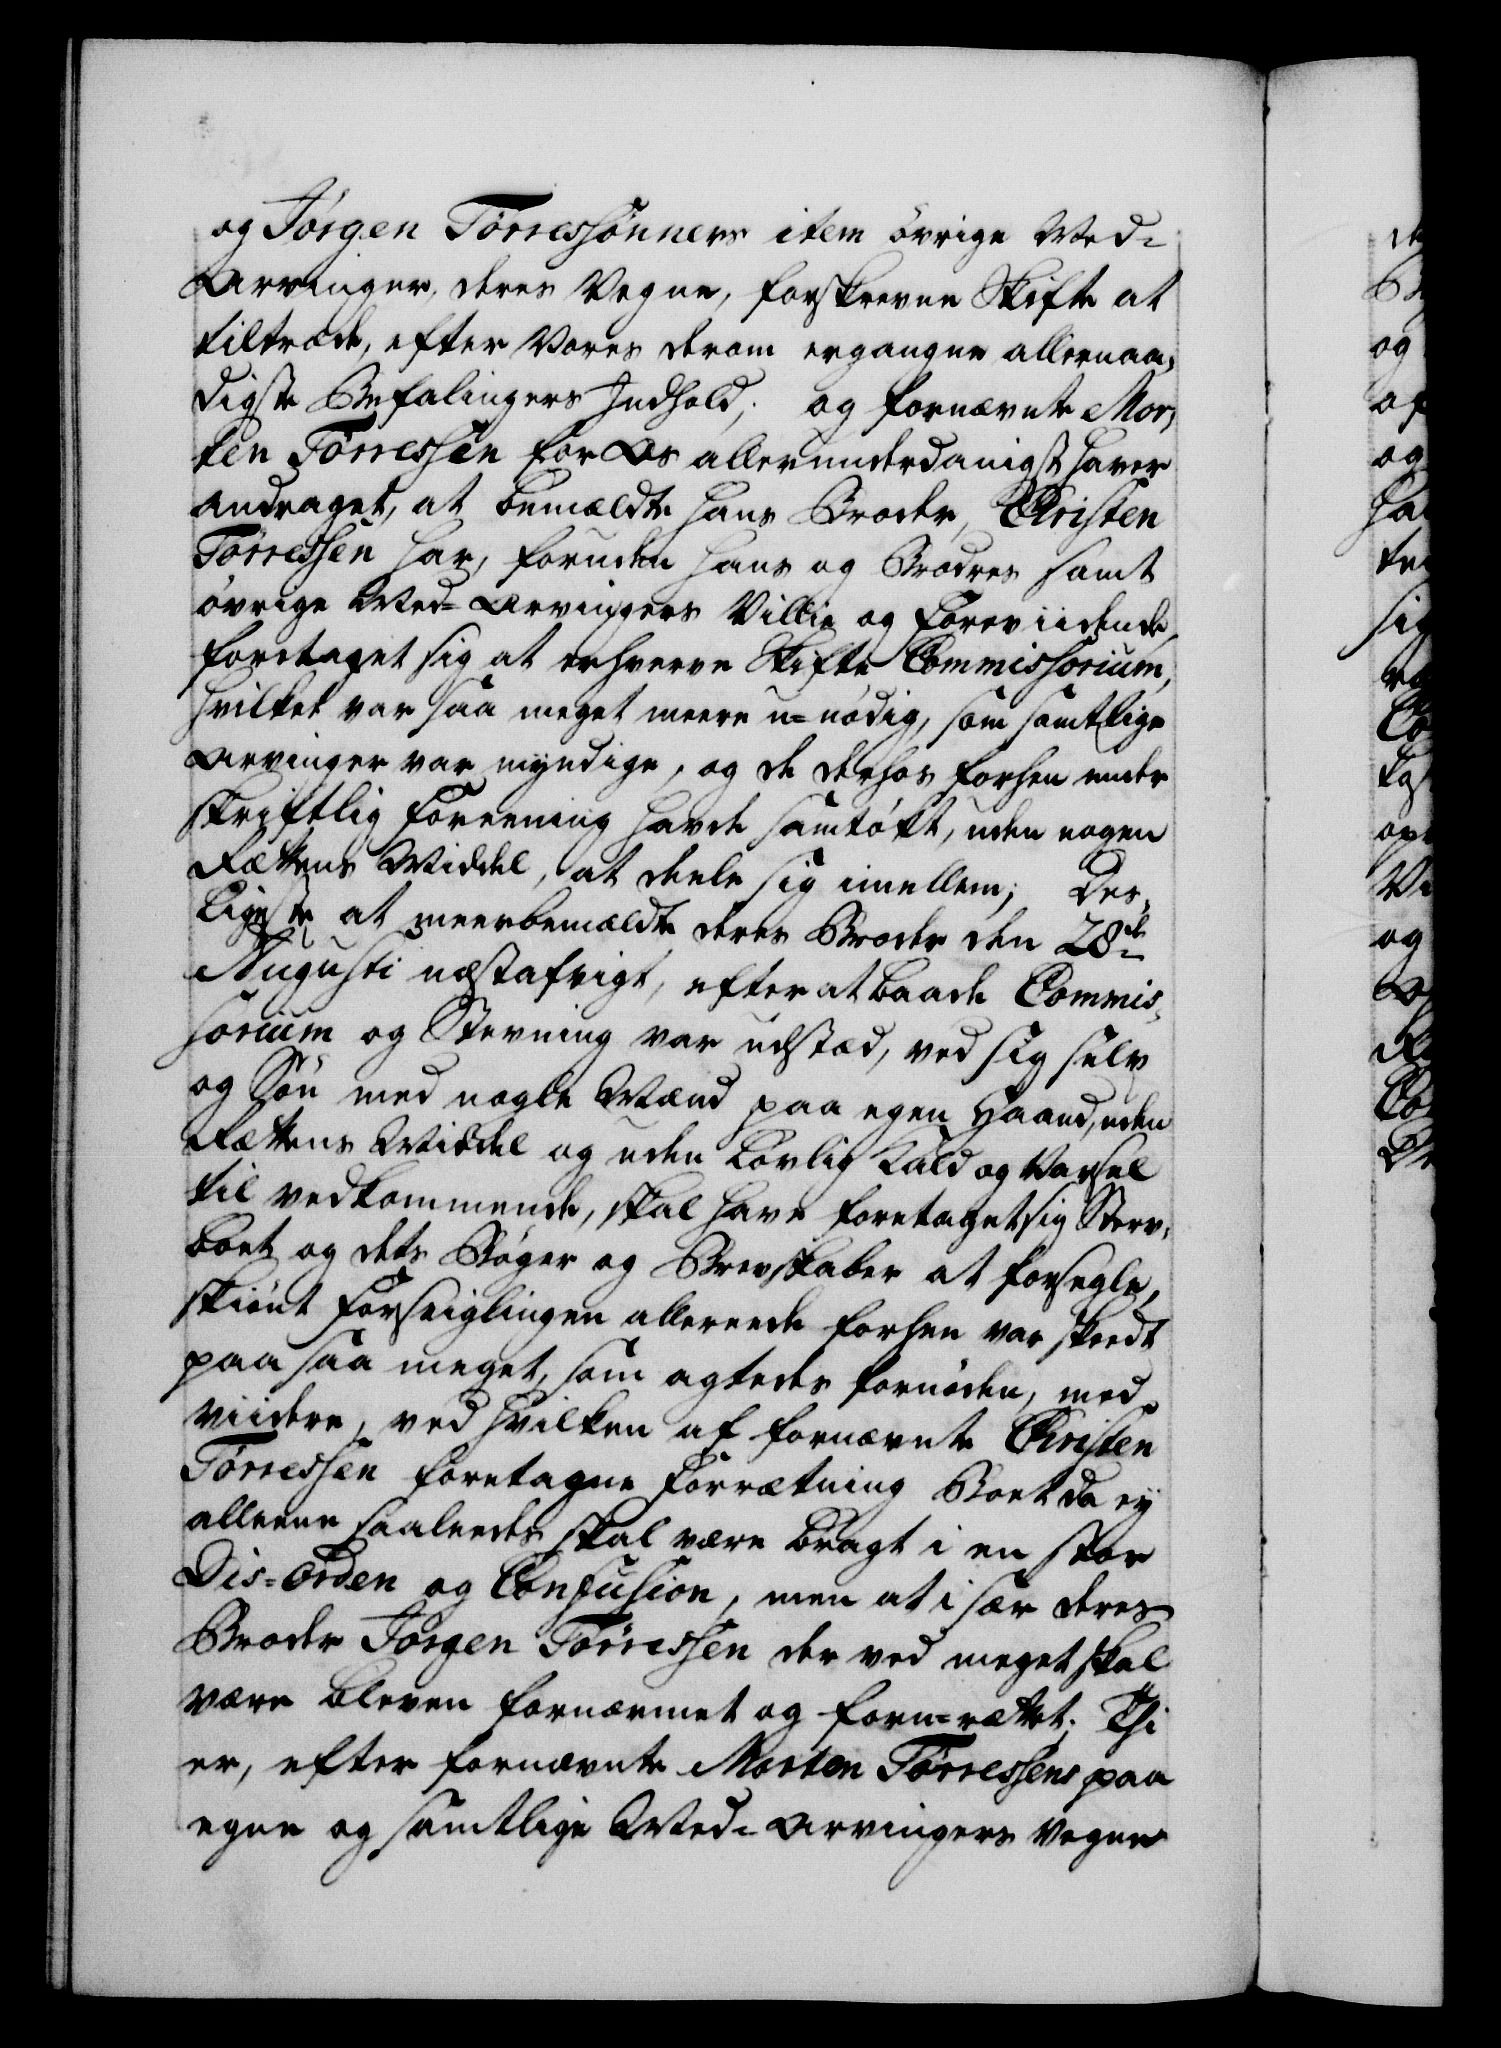 og Jörgen Törressönners item övrige Med-
Arvinger, deres Vegne, forskrevne Skifte at
tiltræde, efter Vores derom ergangne allernaa,
digste Befalingers Indhold; og fornævnte Mor,
ten Törressen for Os allerunderdanigst haver
andraget, at bemældte hans Broder, Christen
Törressen har, foruden hans og Brödres samt
övrige Med-Arvingers Villie og Foreviidende,
foretaget sig at erhverve Skifte Commissorium,
hvilket var saa meget meere u-nödig, som samtlige
Arvinger var myndige, og de derhos forhen under
skriftlig Foreening havde samtökt, uden nogen
Rættens Middel, at deele sig imellem; Des,
ligeste at meerbemældte deres Broder den 28de
Augusti næstafvigt, efter at baade Commis,
sorium og Stevning var udstæd, ved sig selv
og Sön med nogle Mænd paa egen Haand, uden
Rættens Middel og uden Lovlig Kald og Varsel
til vedkommende, skal have foretaget sig Sterv,
boet og dets Böger og Brevskaber at forsegle,
skiönt Forseiglingen allereede forhen var skeedt
paa saa meget, som agtedes fornöden, med
viidere, ved hvilken af fornævnte Christen
Törressen foretagne Forrætning Boet da ey
alleene saaleedes skal være bragt i en stor
Dis-Orden og Confusion, men at i sær deres
Broder Jörgen Törressen der ved meget skal
være bleven fornærmet og foru-rættet; Thi
er, efter fornævnte Morten Törressens paa
egne og samtlige Med-Arvingers Vegne